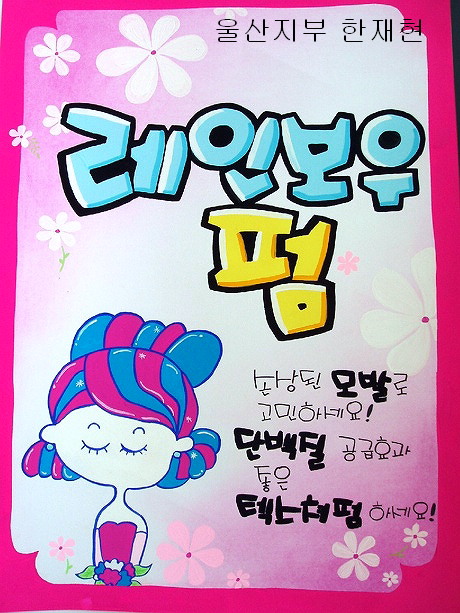 울산지부 한재현
레인보우
펌
손상된 모발로
고민하세요!
단백질 공급효과
좋은
텍스처펌 하세요!